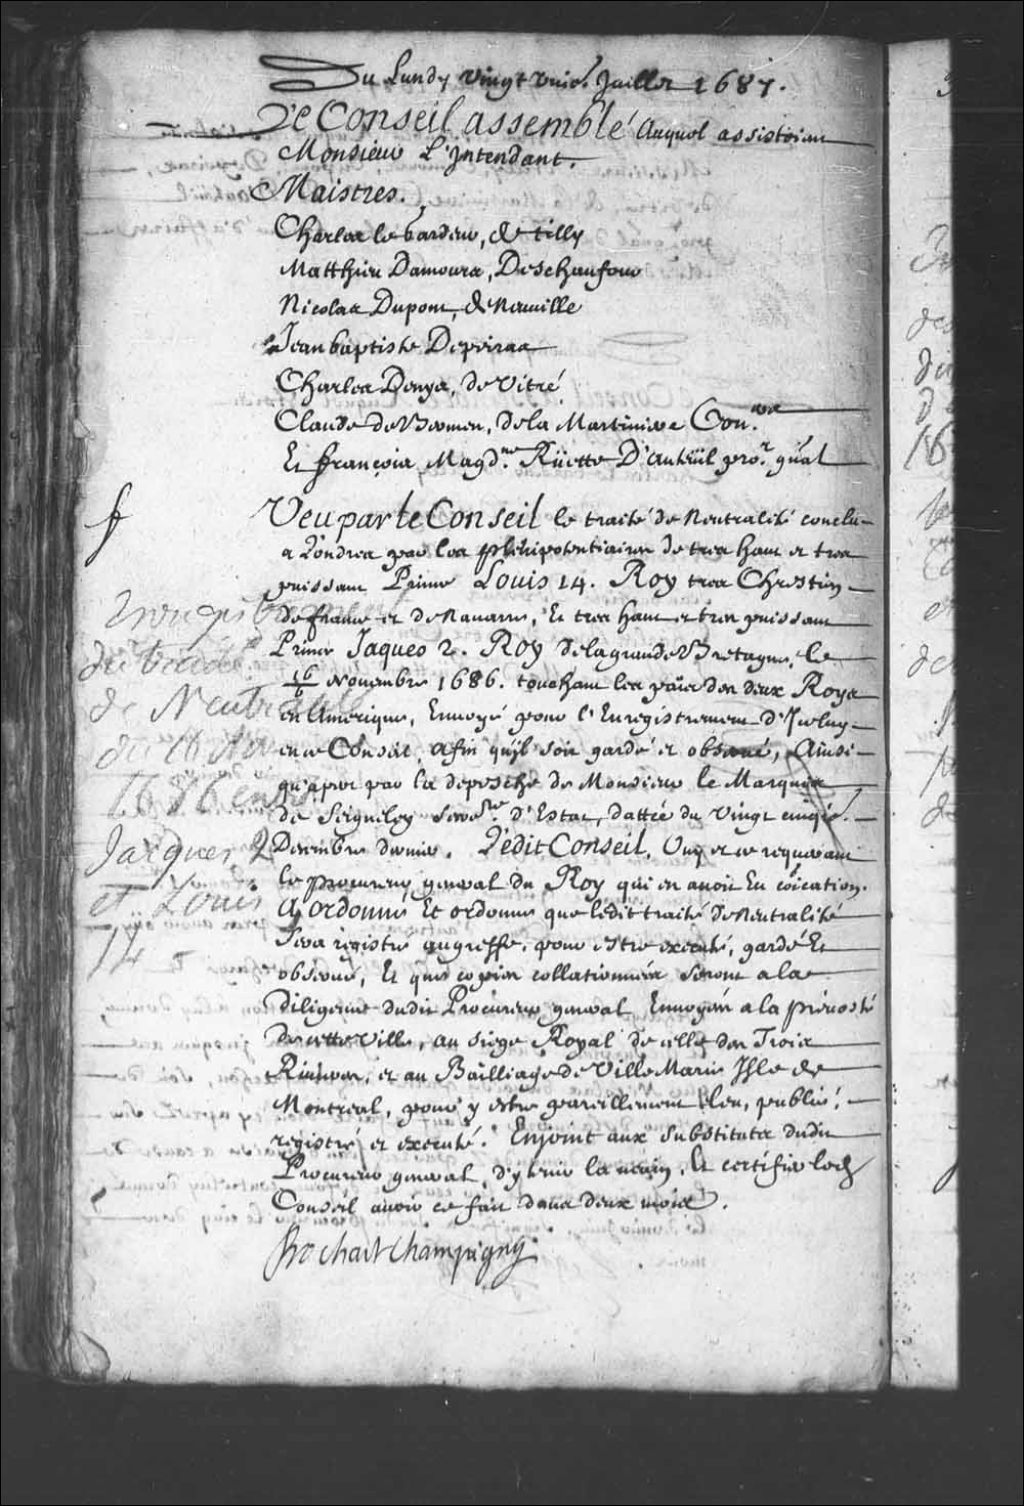 Du Lundy vingt unie. Juillet 1687.
Le Conseil assemblé auquel assistoient
Monsieur L'Intendant.
Maistres.
Charles le Gardeur, de Tilly
Matthieu Damours, Deschaufour
Nicolas Dupont, de Neuville
Jean baptiste Depeiras
Charles Denys, de Vitré
Claude de Bermen, de la Martiniere Con.ers
Et françois Magd.ne Rüette D'auteüil pro.r gñal
Veu par le Conseil le traité de Neutralité conclu
a Londres par les plenipotentiaires de tres haut et tres
puissant Prince Louis 14. Roy tres Chrestien
de france et de Navarre, Et tres haut et tres puissant
Prince Jaques 2. Roy de la grande Bretagne, le
16/6 Novembre 1686. touchant les païs des deux Roys
en Amerique, Envoyé pour l'Enregistrement d'Iceluy
en ce Conseil, afin qu'il soit gardé et observé, Ainsi
qu'apert par la depesche de Monsieur le Marquis
de Seignelay Secre.re d'Estat, dattée du vingt cinqie.
Decembre dernier. Ledit Conseil, Ouy et ce requerant
le procureur general du Roy qui en avoit Eu cõication.
A ordonné Et ordonne que ledit traité de Neutralité
sera registré au greffe, pour estre executé, gardé Et
observé, Et que copies collationnées seront a la
diligence dudit Procureur general Envoyées a la prévosté
de cette ville, au siege Royal de celle des Trois
Rivieres, et au Bailliage de Ville Marie Isle de
Montreal, pour y estre pareillement leu, publié,
registré et executé. Enjoint aux substituts dudit
Procureur general, d'y tenir la main, Et certifier led.
Conseil avoir ce fait dans deux mois.
Bochart Champigny
Enregistrement
du traité
de Neutralité
du 16 Nov
1686 entre
Jacques 2
et Louis
14